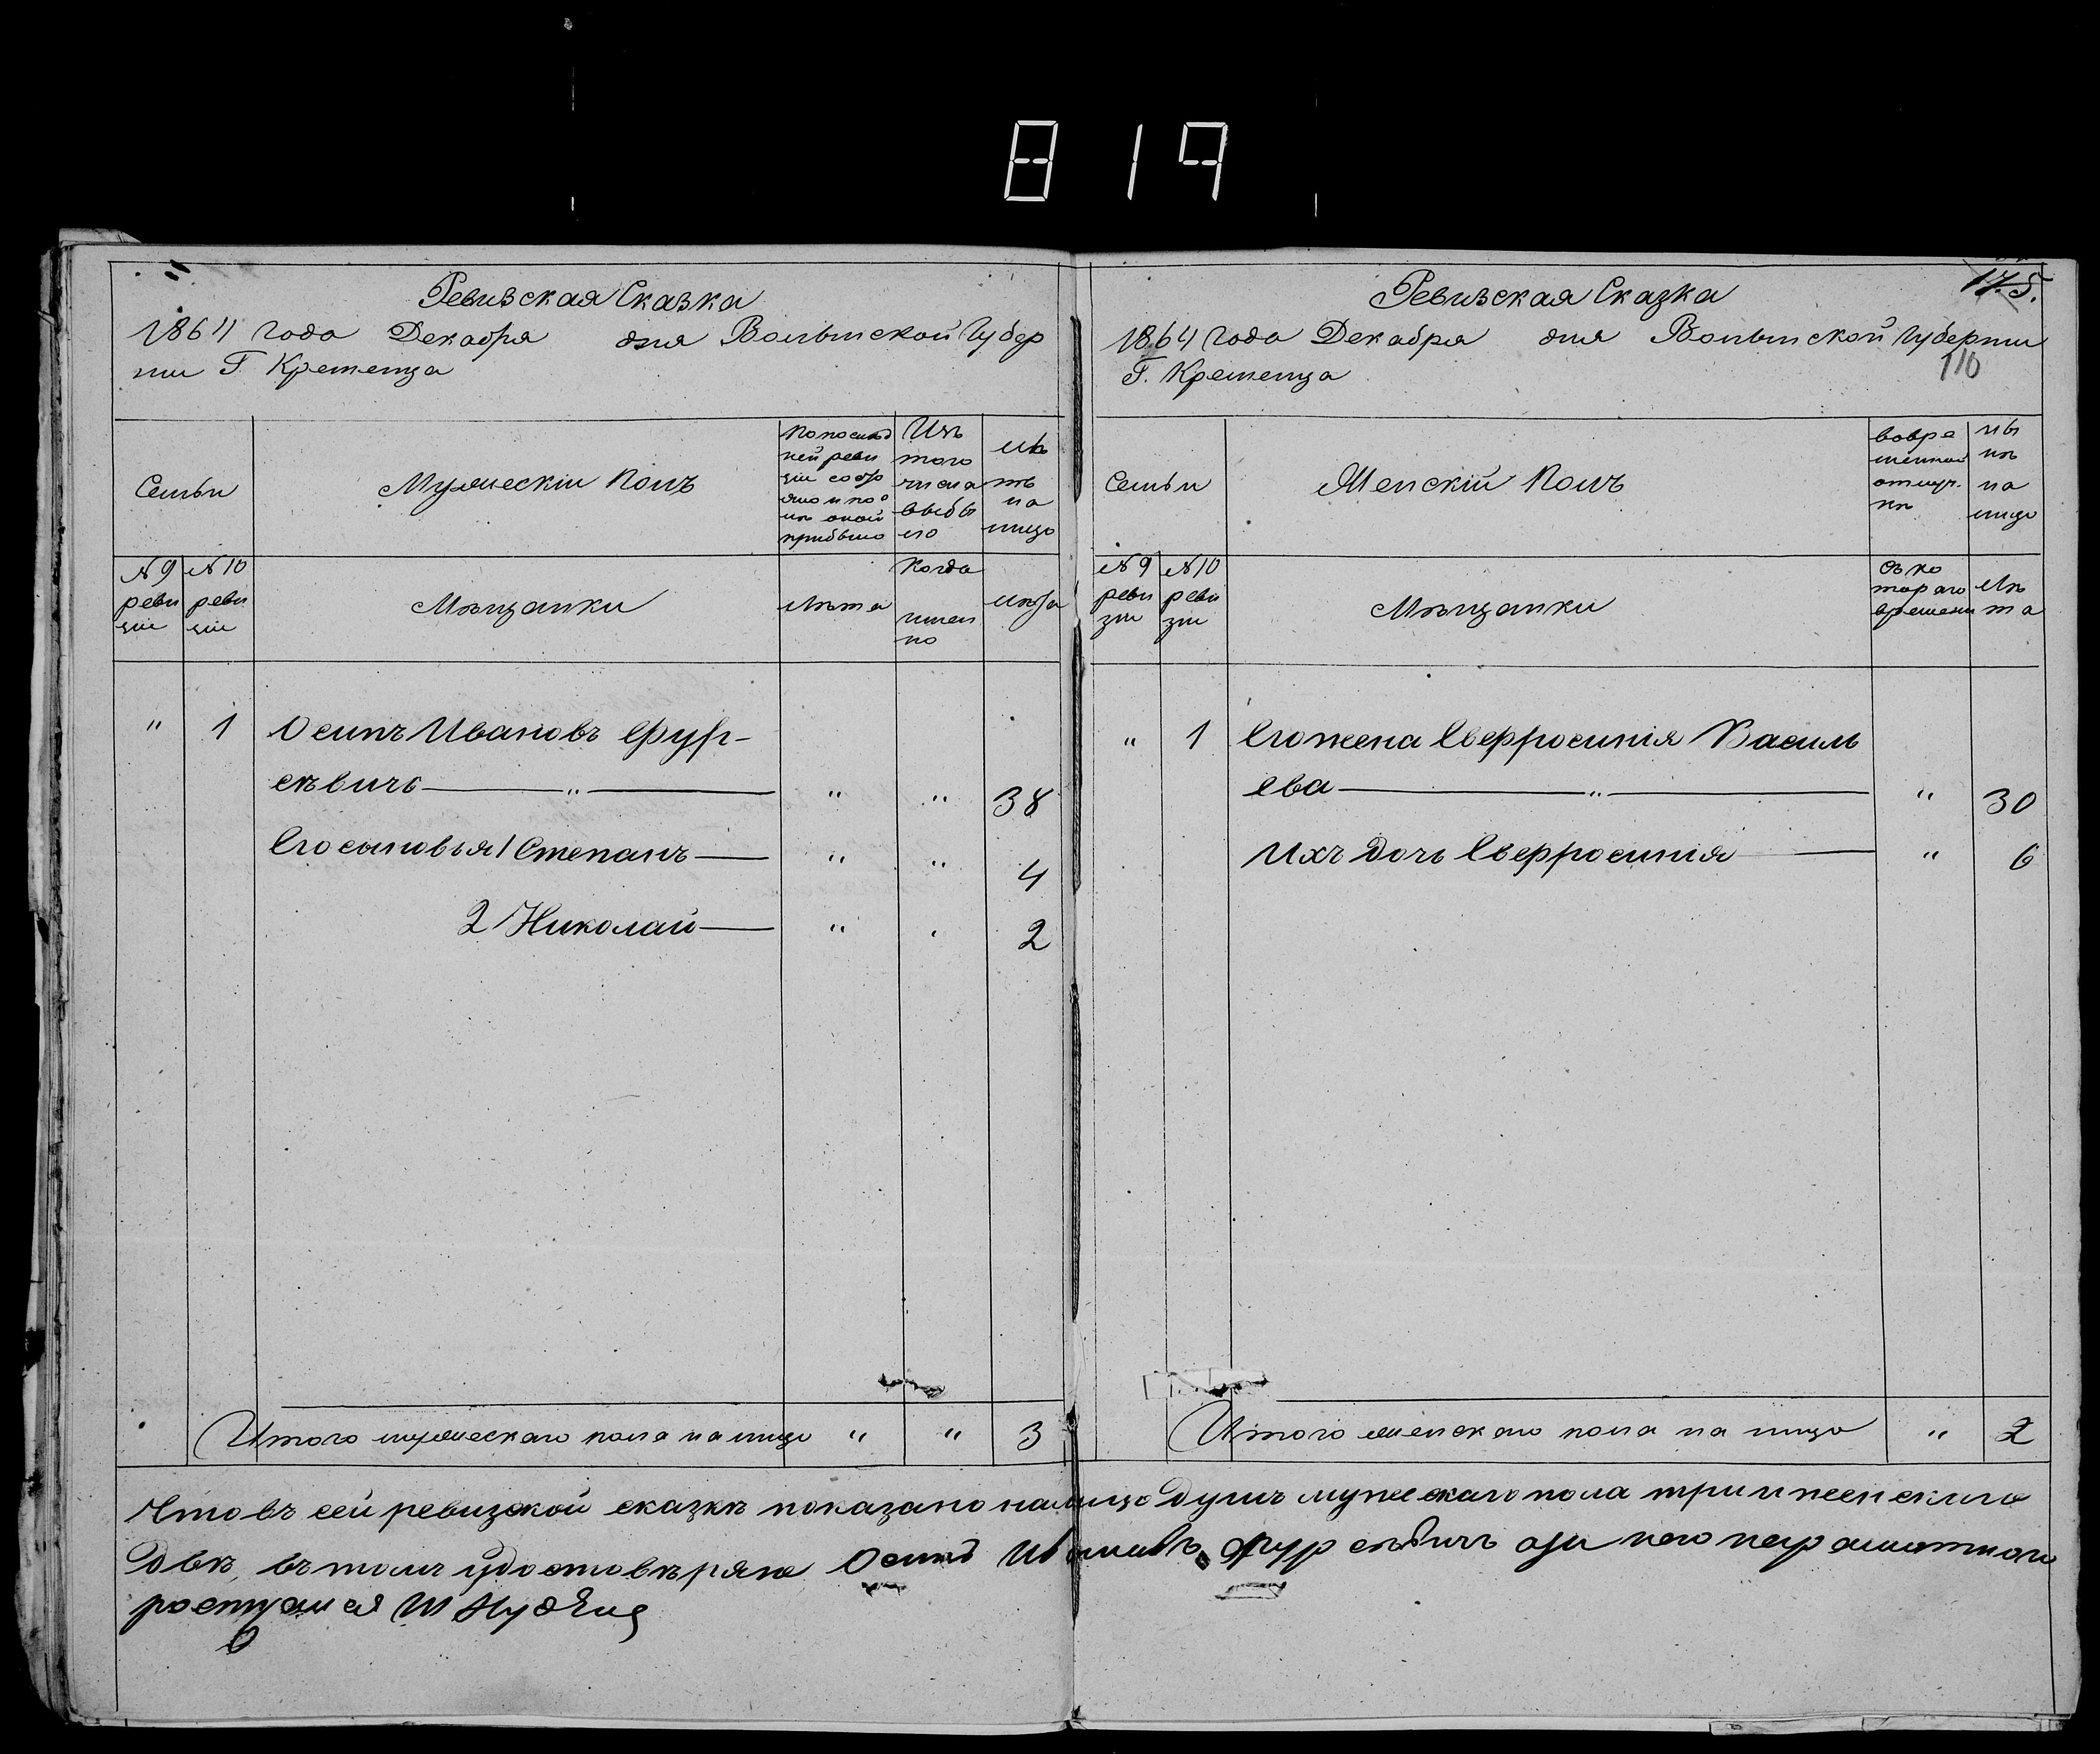 819
Ревизская Сказка
1864 года Декабря дня Волынской Губер
нии Г. Кременца
Семьи
Мужескій Полъ
По послѣд
ней реви
зіи состо
яло и по
прибыло
Изъ
того
числа
выбы
ло
на
лицо
№9
реви
зіи
№10
реви
зіи
Мѣщанки
Лѣта
Когда
имен
но
Лѣта
" 1 Осипъ Ивановъ Фур-
сѣвичъ " " " 38
Его сыновья 1 Степанъ " " 4
2 Николай " " 2
Итого мужескаго пола на лицо " " 3
Ревизская Сказка
17.5.
1864 года Декабря дня Волынской Губерніи
110
Г. Кременца
Семьи
Женскій Полъ
во вре
менной
отлуч.
кѣ
на
лицо
№9
реви
зіи
№10
реви
зіи
Мѣщанки
Съ ко
тораго
времени
Лѣ
та
" 1 Его жена Евфросинія Василь
ева " " 30
Ихъ дочь Евфросинія " 6
Итого женскаго пола на лицо " 2
Что въ сей ревизской сказкѣ показано на лицо душъ мужескаго пола три и женскаго
двѣ, въ томъ удостовѣряю Осипъ Ивановъ Фурсѣвичъ а за него неграмотнаго